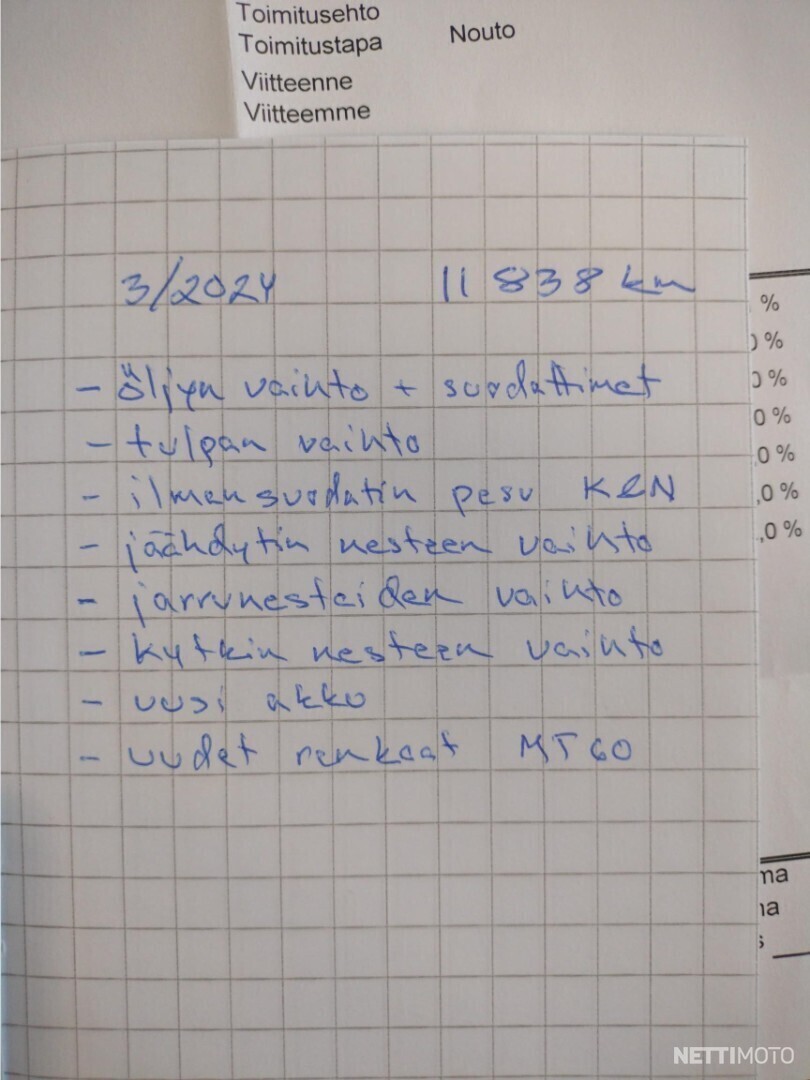 Toimitusehto
Toimitustapa Nouto
Viitteenne
Viitteemme
3/2024 11 838 km
- öljyn vaihto + suodattimet
- tulpan vaihto
- ilmansuodatin pesu K&N
- jäähdytin nesteen vaihto
- jarrunesteiden vaihto
- kytkin nesteen vaihto
- uusi akku
- uudet renkaat MT60
%
%
0 %
0 %
,0 %
,0 %
,0 %
ma
na
s
NETTIMOTO